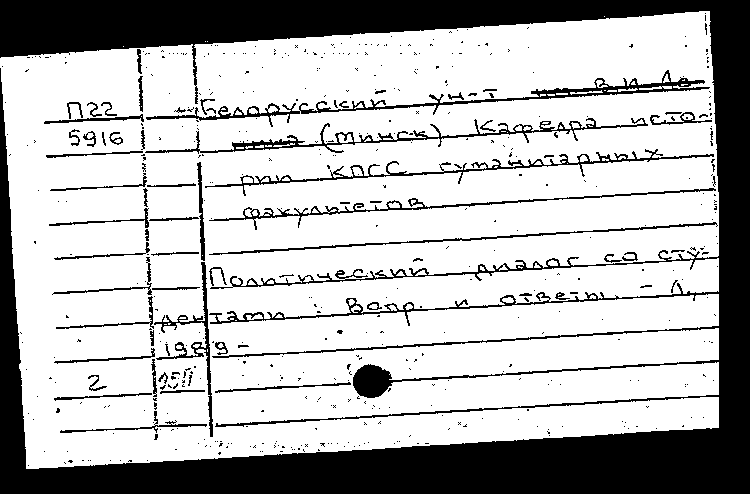 П22 Белорусский ун-т им В И Ле
5916 нина (Минск) Кафедра исто-
рии КПСС гуманитарных
факультетов
Политический диалог со сту-
дентами : Вопр. и ответы. - Л.,
1989 -
2